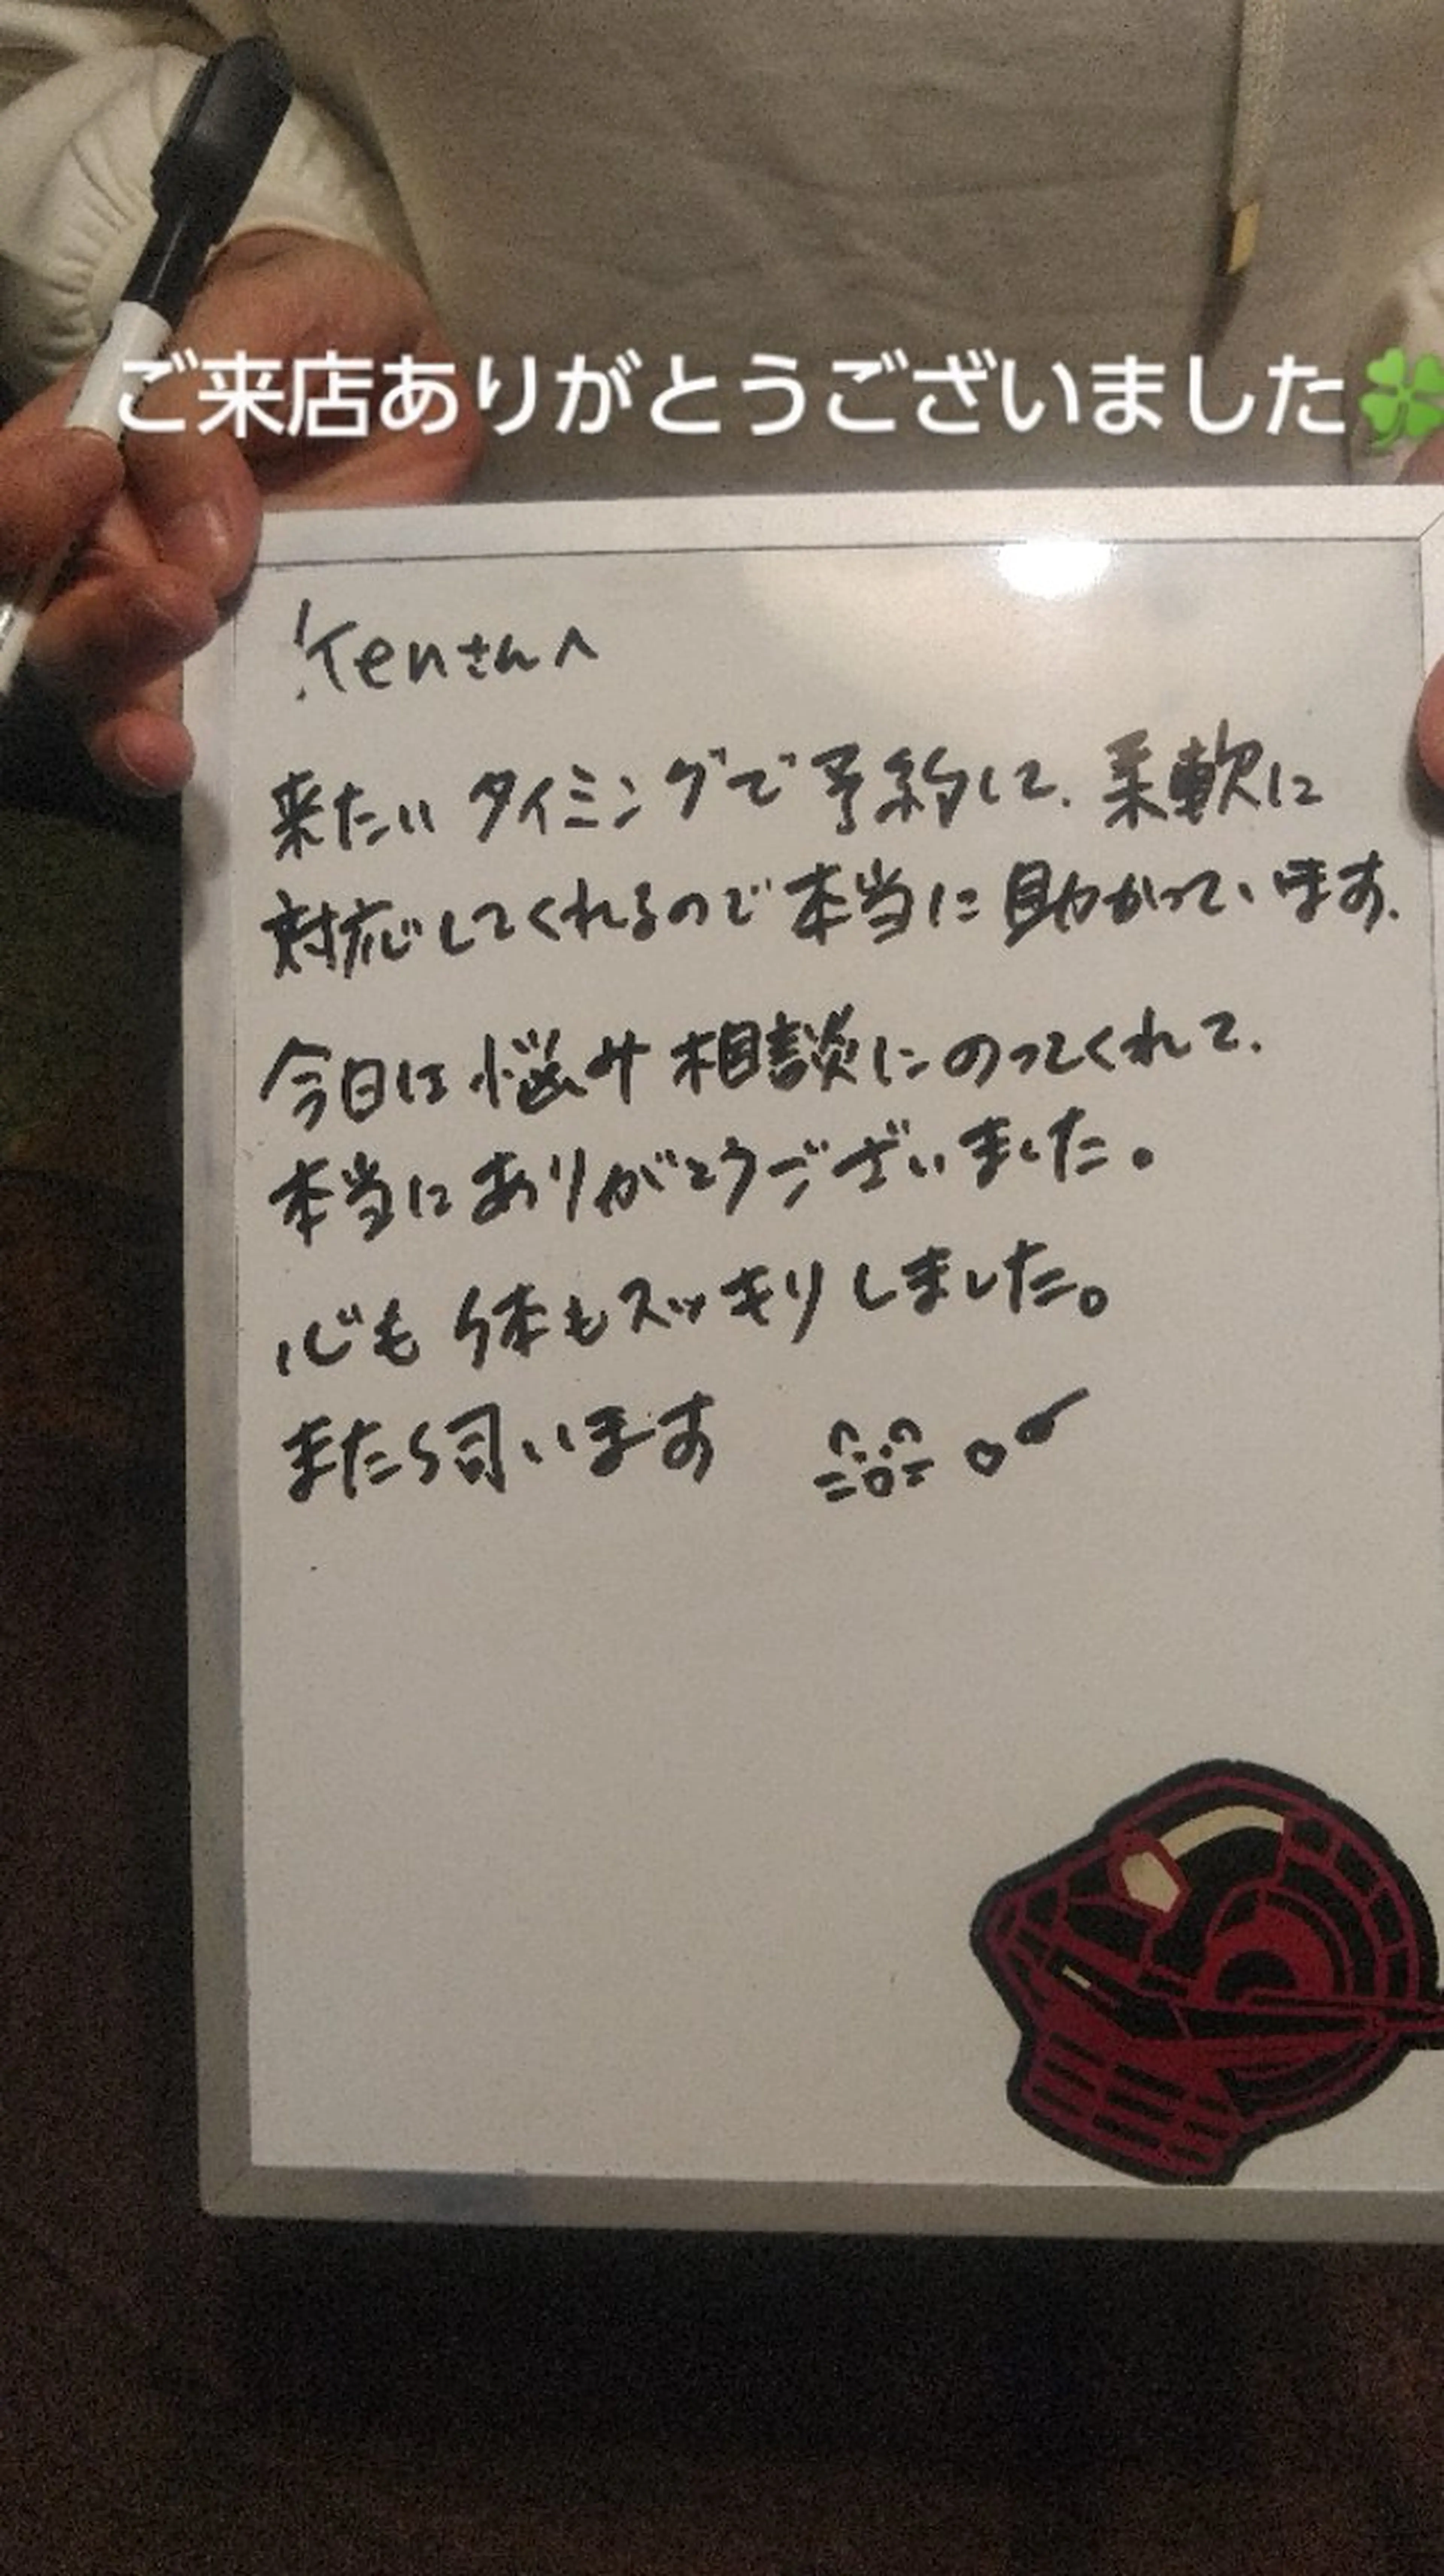 ご来店ありがとうございました🍀
Kenさんへ
来たいタイミングで予約して、柔軟に
対応してくれるので本当に助かっています、
今日は悩み相談にのってくれて、
本当にありがとうございました。
心も体もスッキリしました。
また伺います